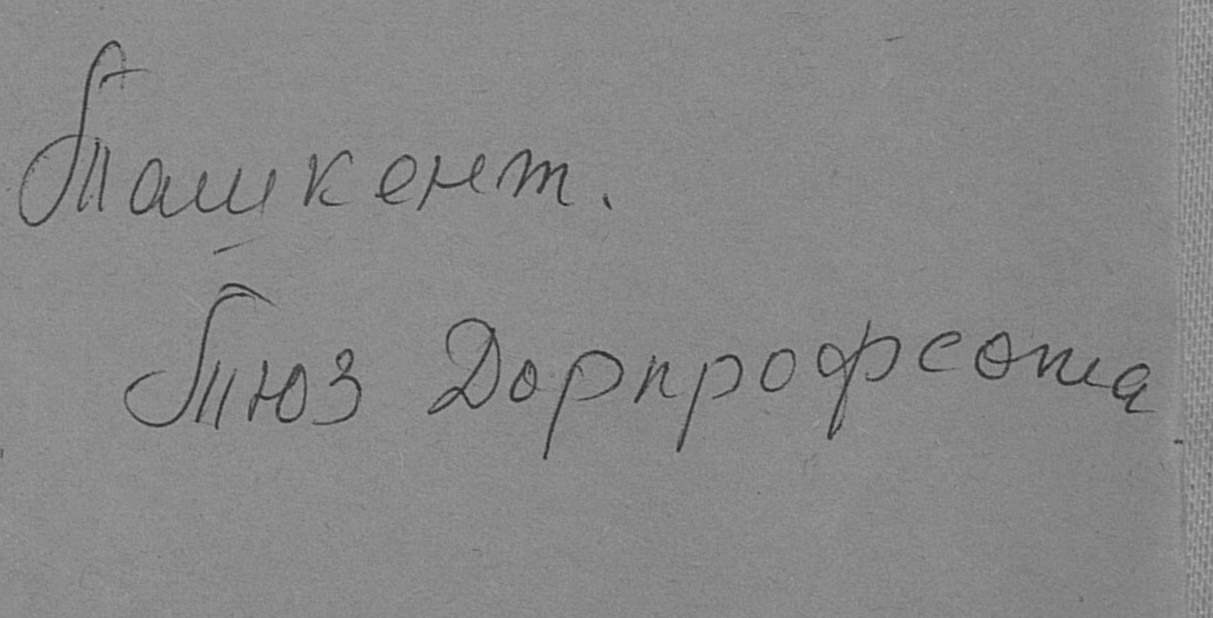 Ташкент.
Тюз Дорпрофсожа